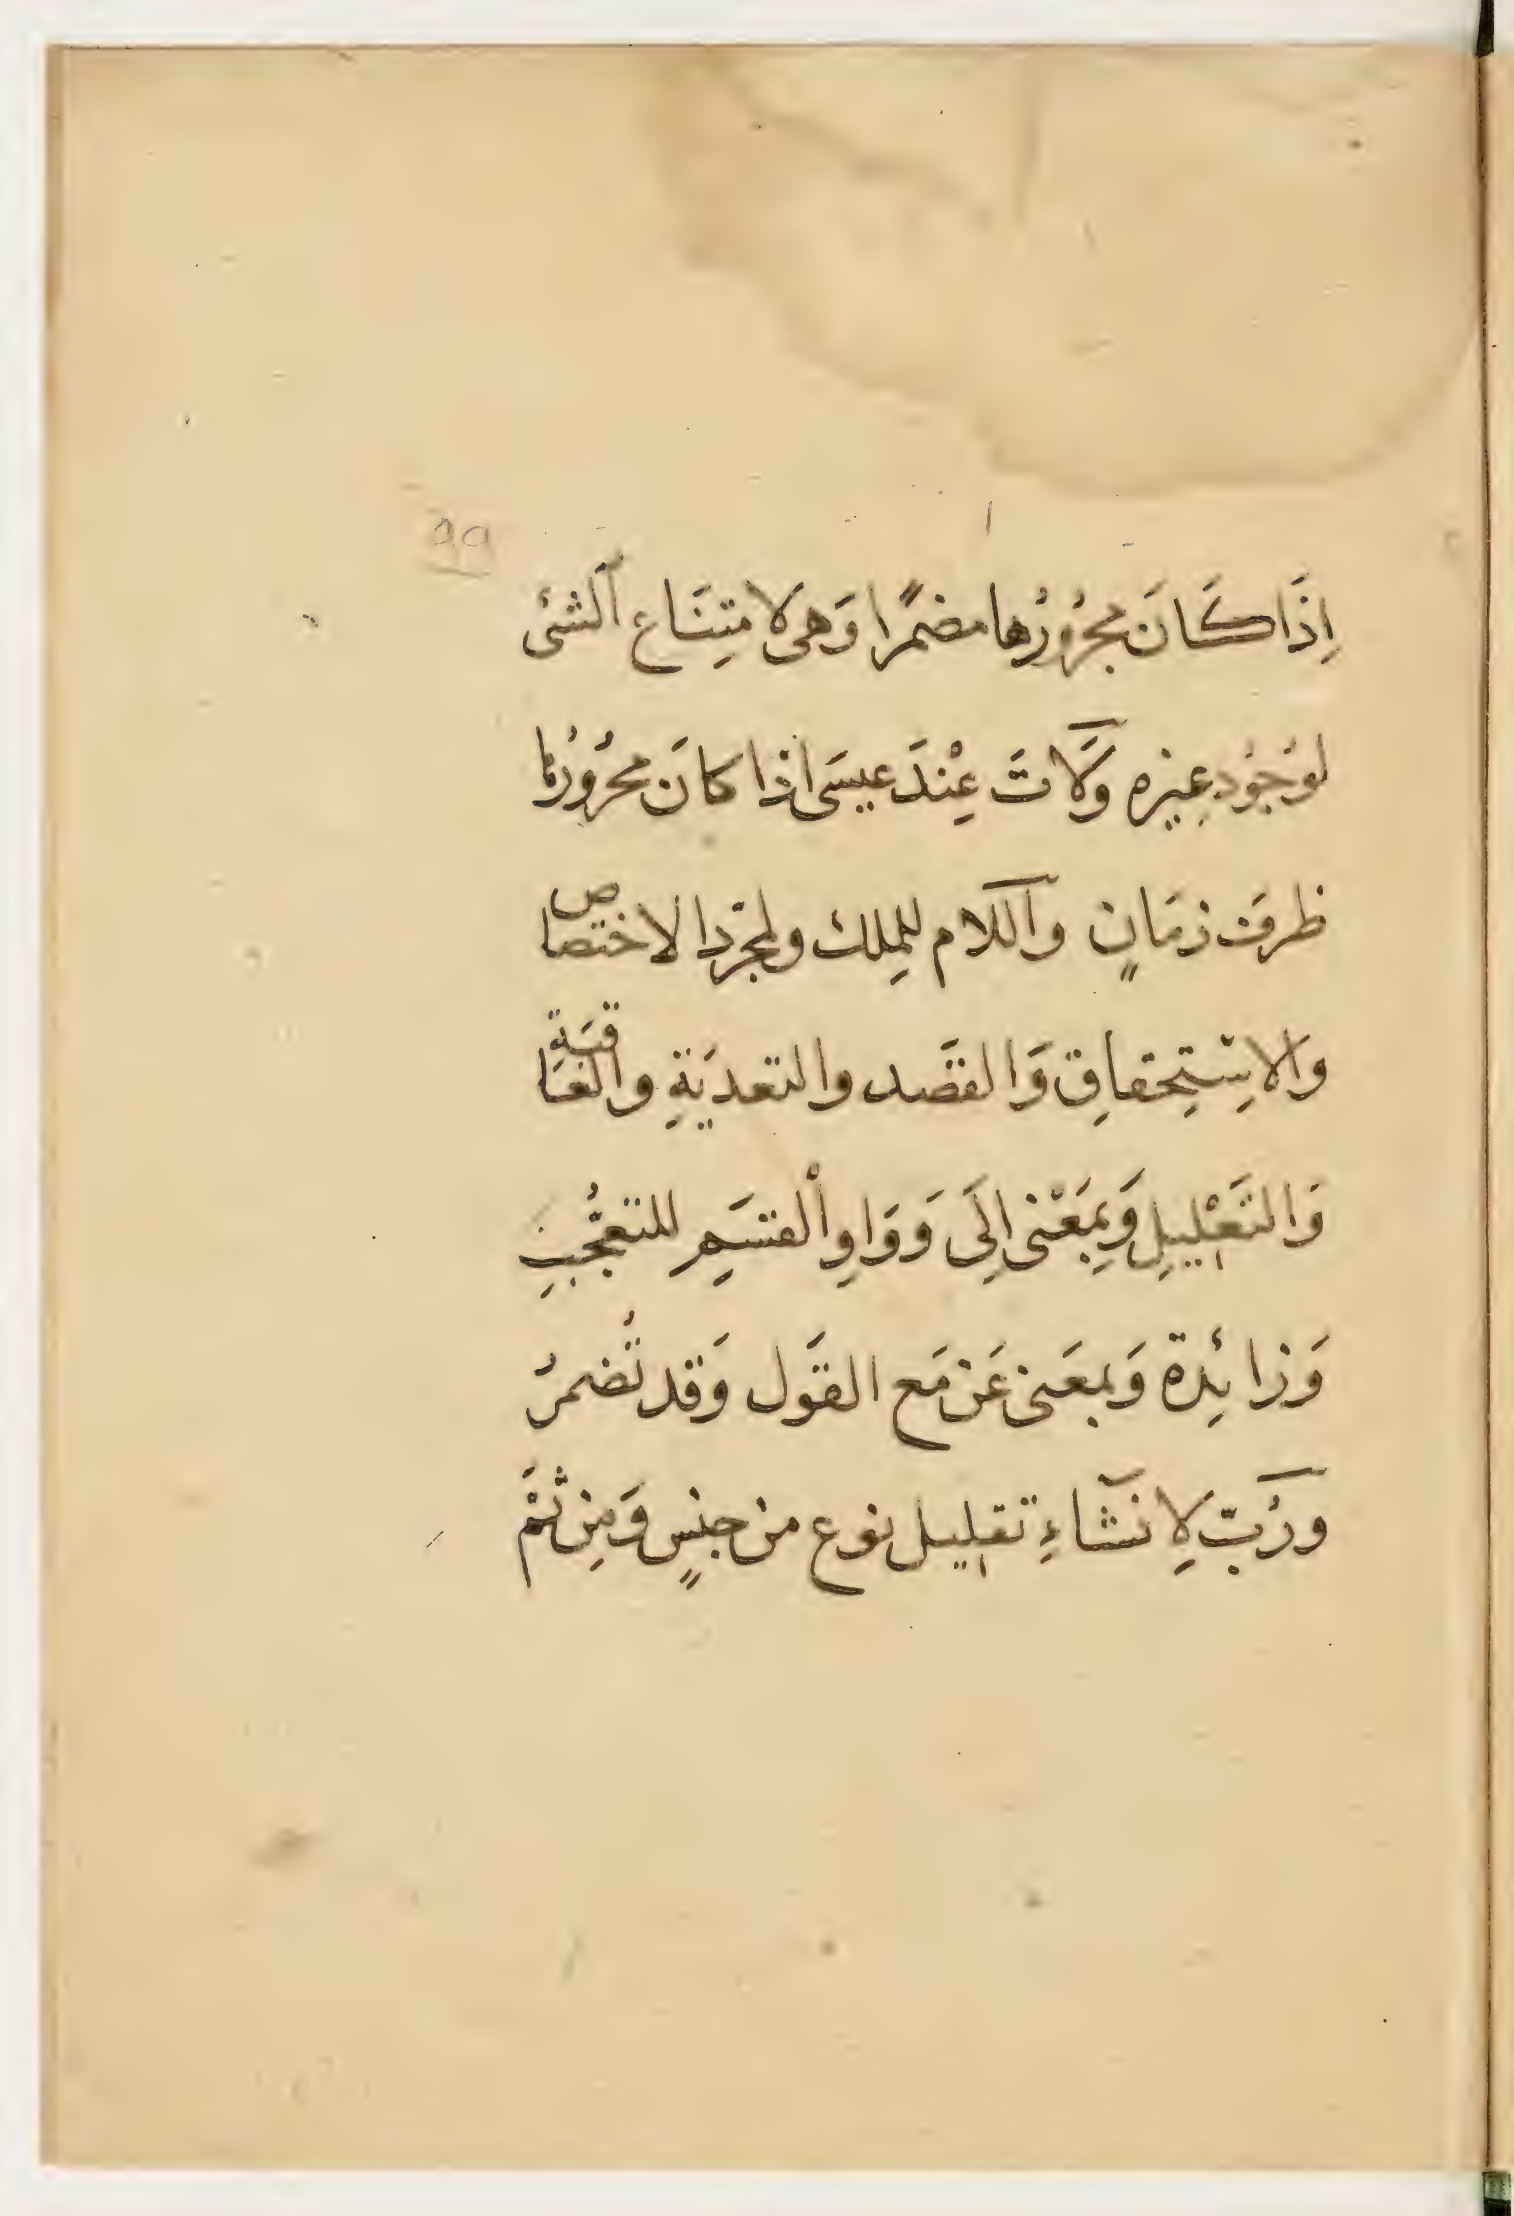 ٩٩
اِذَا كَانَ مجرُورُها مضمرًا وَهى لامتِنَاع اَلشئى
لوُجُودِ غيره وَلَاتَ عِنْدَ عيسَى اذا كانَ مجرُورُها
ظرفَ زمَانٍ واللام للمِلك ولمجرّد الاختصاص
وَالاِسْتِحقاقِ وَالقصَد والتعديَةِ والعَاقبَة
وَالتَعْلِيلِ وَبِمَعْنى اِلَى وَوَاوِ اْلقسَمِ للتعجُّبِ
وَزائِدة وَبمعَنى عَن مَع القوَل وَقد تُضمرُ
ورُبّ لِانشَاءِ تقليل نوع من جنسٍ وَمِن ثَمّ